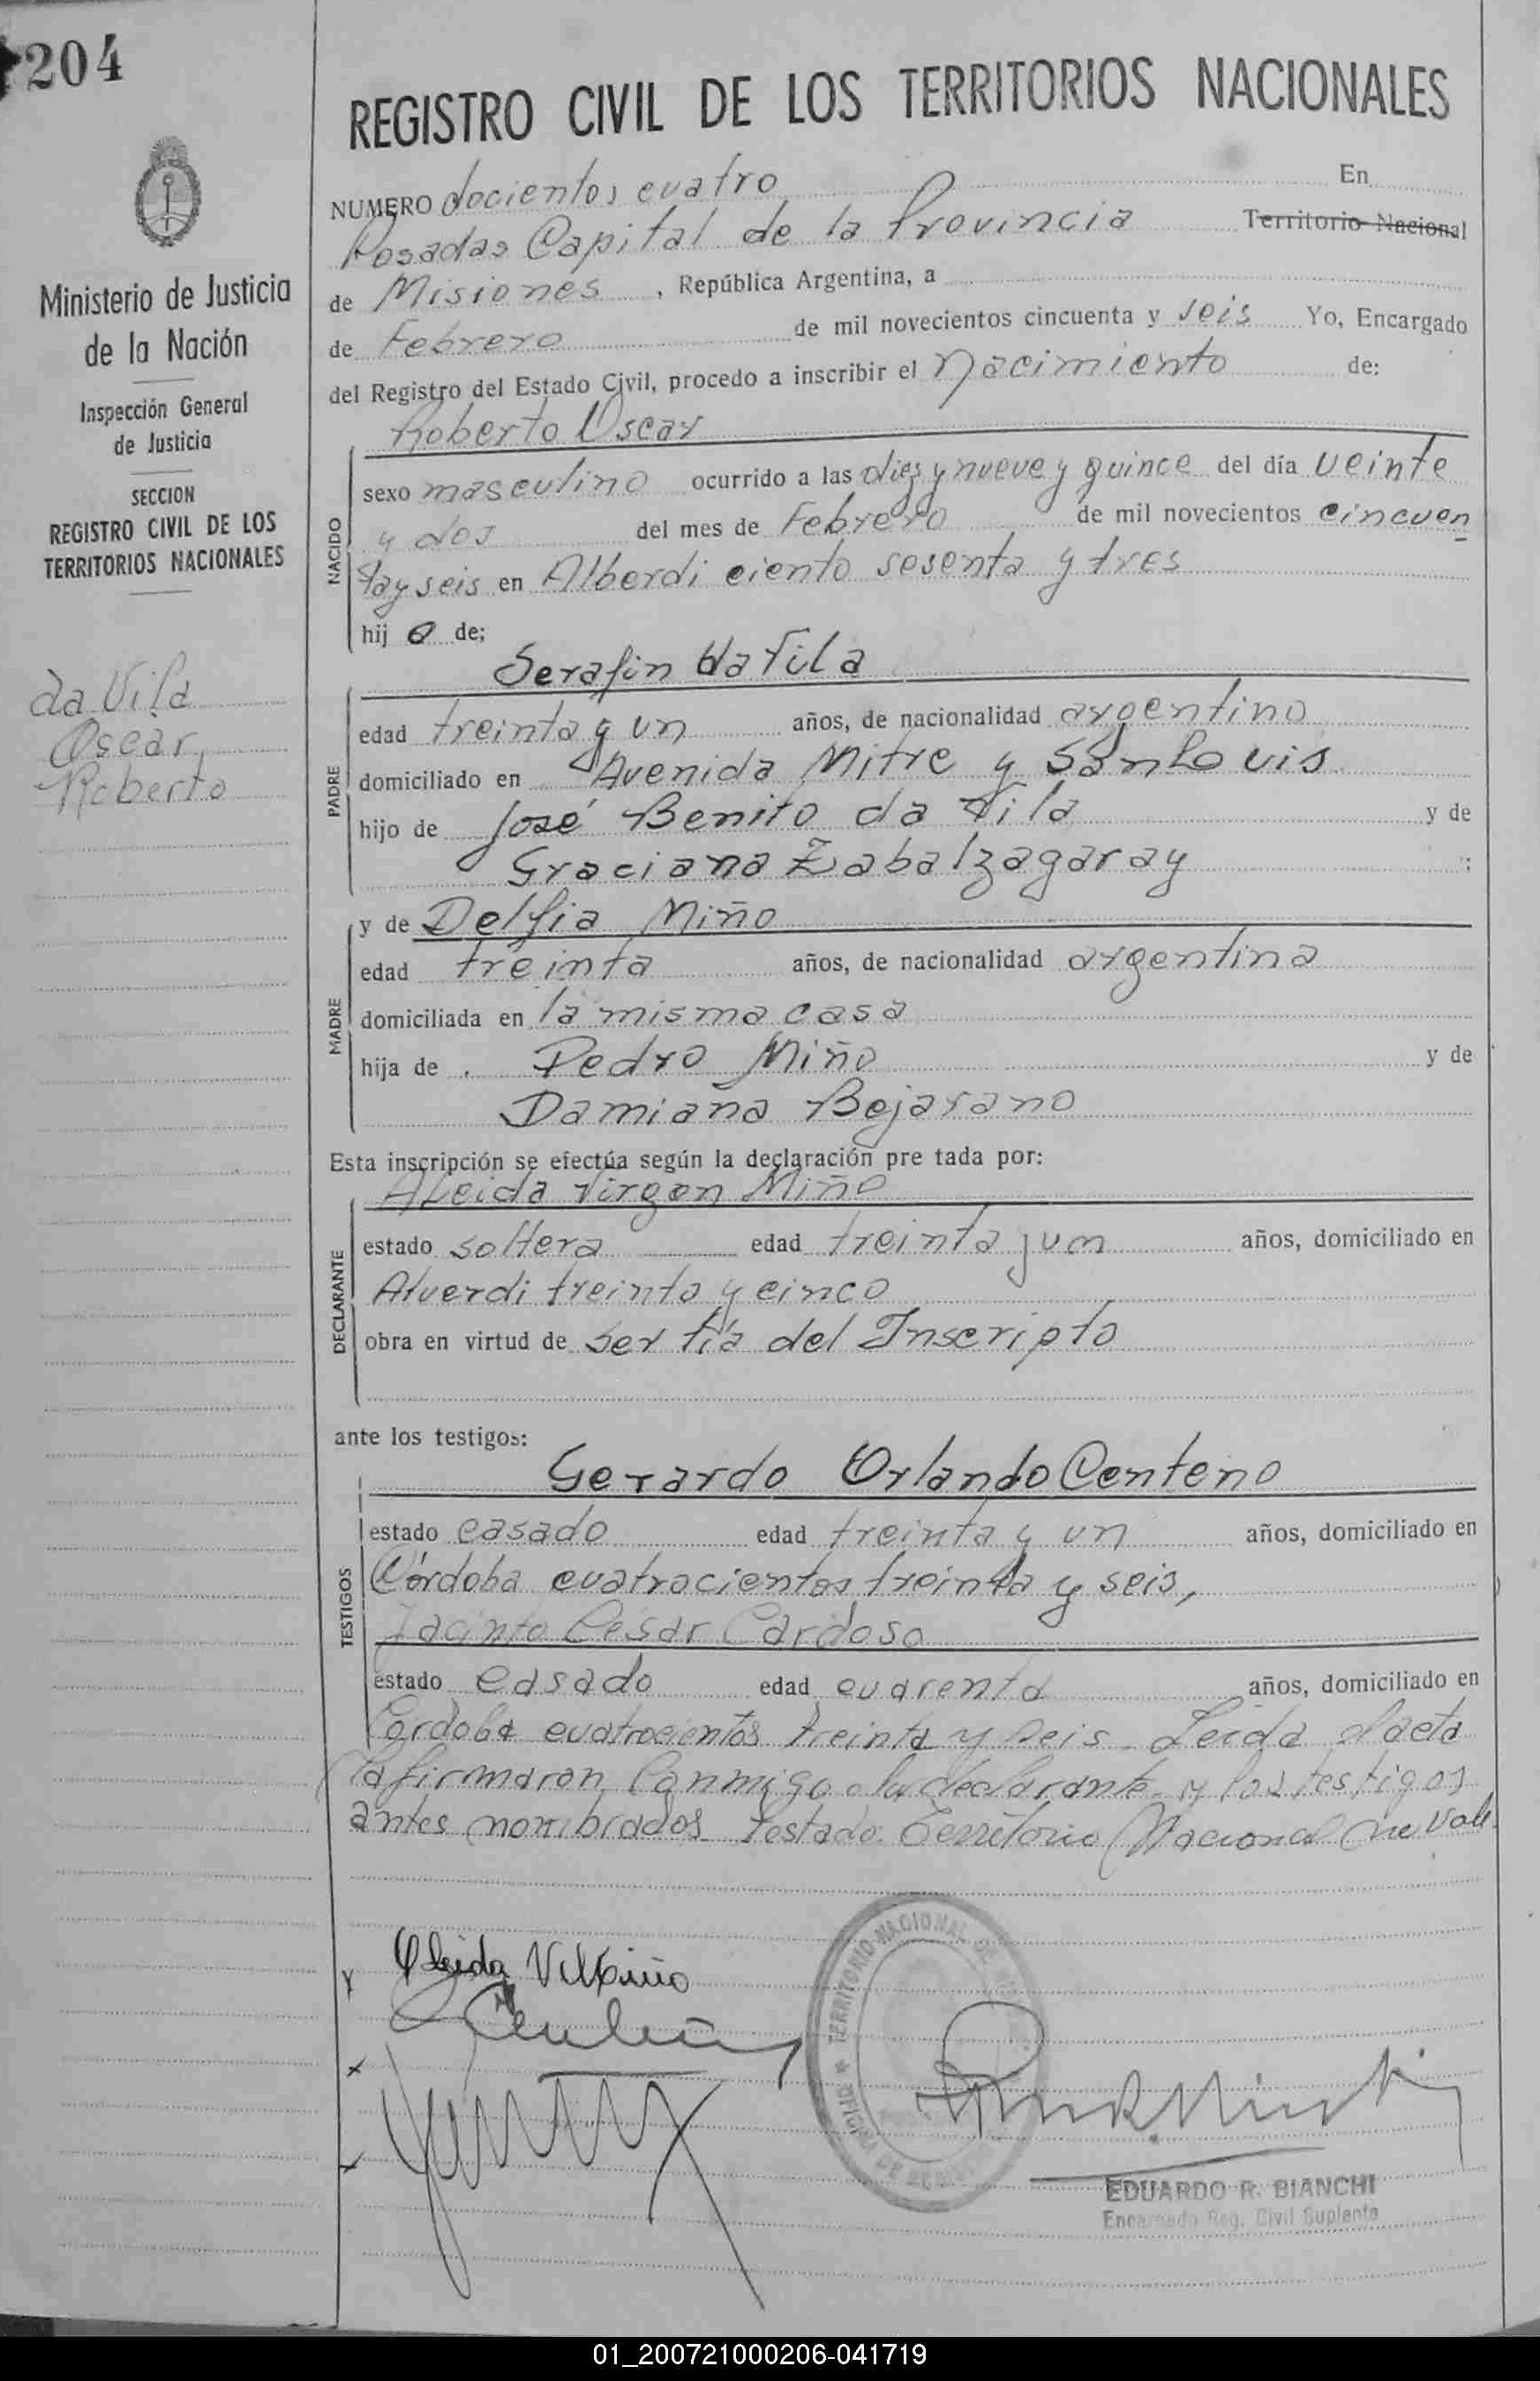 204
REGISTRO CIVIL DE LOS TERRITORIOS NACIONALES
Ministerio de Justicia
de la Nación
Inspección General
de Justicia
SECCION
REGISTRO CIVIL DE LOS
TERRITORIOS NACIONALES
da Vila
Oscar
Roberto
NUMERO docientos cuatro En
Posadas Capital de la Provincia Territorio Nacional
de Misiones, República Argentina, a
de Febrero de mil novecientos cincuenta y seis Yo, Encargado
del Registro del Estado Civil, procedo a inscribir el Nacimiento de:
Roberto Oscar
NACIDO
sexo masculino ocurrido a las diez y nueve y quince del día veinte
y dos del mes de Febrero de mil novecientos cincuen
ta y seis en Alberdi ciento sesenta y tres
hijo de;
Serafin da Vila
PADRE
edad treinta y un años, de nacionalidad argentino
domiciliado en Avenida Mitre y San Louis
hijo de José Benito da Vila y de
Graciana Zabalzagaray ;
y de Delfia Miño
MADRE
edad treinta años, de nacionalidad argentina
domiciliada en la misma casa
hija de Pedro Miño y de
Damiana Bejarano
Esta inscripción se efectúa según la declaración pre tada por:
Aleida Virgen Miño
DECLARANTE
estado soltera edad treinta y un años, domiciliado en
Alverdi treinta y cinco
obra en virtud de ser tía del Inscripto
ante los testigos:
Gerardo Orlando Centeno
TESTIGOS
estado casado edad treinta y un años, domiciliado en
Córdoba cuatrocientos treinta y seis,
Jacinto Cesar Cardoso
estado casado edad cuarenta años, domiciliado en
Cordoba cuatrocientos treinta y seis. Leida el acta
la firmaron conmigo la declarante y los testigos
antes nombrados Testado: Territorio Nacional no vale.
Aleida V Miño
TERRITORIO NACIONAL DE
OFICINA DE
EDUARDO R. BIANCHI
Encargado Reg. Civil Suplente
01_200721000206-041719